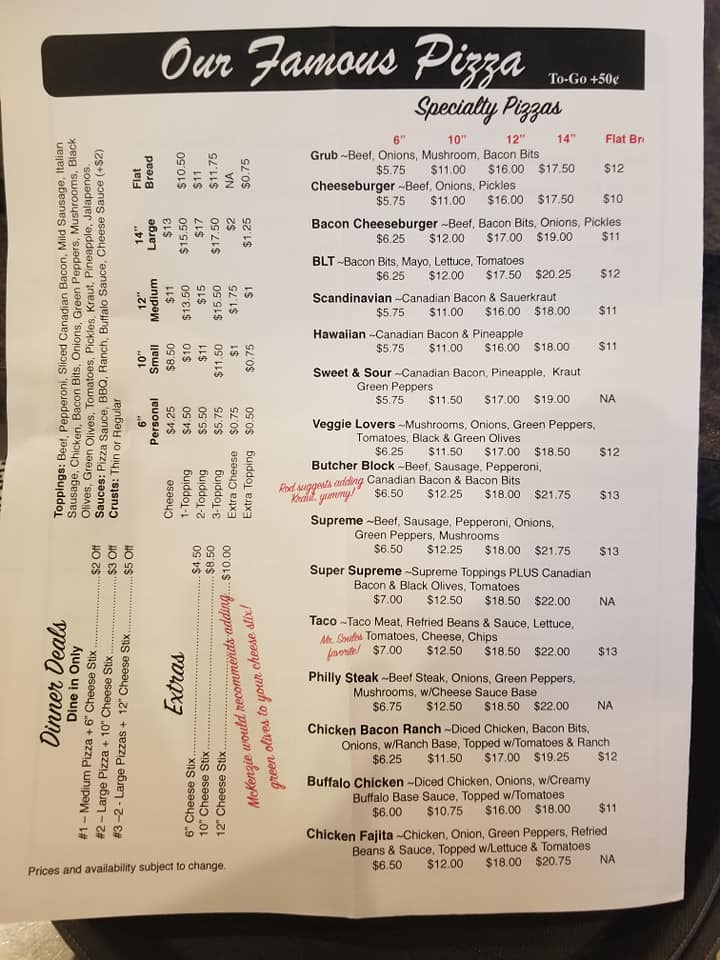 Our Famous Pizza
To-Go +50¢
Specialty Pizzas
6" 10" 12" 14" Flat Br
Grub ~Beef, Onions, Mushroom, Bacon Bits
$5.75 $11.00 $16.00 $17.50 $12
Cheeseburger ~Beef, Onions, Pickles
$5.75 $11.00 $16.00 $17.50 $10
Bacon Cheeseburger ~Beef, Bacon Bits, Onions, Pickles
$6.25 $12.00 $17.00 $19.00 $11
BLT ~Bacon Bits, Mayo, Lettuce, Tomatoes
$6.25 $12.00 $17.50 $20.25 $12
Scandinavian ~Canadian Bacon & Sauerkraut
$5.75 $11.00 $16.00 $18.00 $11
Hawaiian ~Canadian Bacon & Pineapple
$5.75 $11.00 $16.00 $18.00 $11
Sweet & Sour ~Canadian Bacon, Pineapple, Kraut
Green Peppers
$5.75 $11.50 $17.00 $19.00 NA
Veggie Lovers ~Mushrooms, Onions, Green Peppers,
Tomatoes, Black & Green Olives
$6.25 $11.50 $17.00 $18.50 $12
Butcher Block ~Beef, Sausage, Pepperoni,
Canadian Bacon & Bacon Bits
Rod suggests adding
Kraut, yummy!
$6.50 $12.25 $18.00 $21.75 $13
Supreme ~Beef, Sausage, Pepperoni, Onions,
Green Peppers, Mushrooms
$6.50 $12.25 $18.00 $21.75 $13
Super Supreme ~Supreme Toppings PLUS Canadian
Bacon & Black Olives, Tomatoes
$7.00 $12.50 $18.50 $22.00 NA
Taco ~Taco Meat, Refried Beans & Sauce, Lettuce,
Tomatoes, Cheese, Chips
Mr. Soules
favorite!
$7.00 $12.50 $18.50 $22.00 $13
Philly Steak ~Beef Steak, Onions, Green Peppers,
Mushrooms, w/Cheese Sauce Base
$6.75 $12.50 $18.50 $22.00 NA
Chicken Bacon Ranch ~Diced Chicken, Bacon Bits,
Onions, w/Ranch Base, Topped w/Tomatoes & Ranch
$6.25 $11.50 $17.00 $19.25 $12
Buffalo Chicken ~Diced Chicken, Onions, w/Creamy
Buffalo Base Sauce, Topped w/Tomatoes
$6.00 $10.75 $16.00 $18.00 $11
Chicken Fajita ~Chicken, Onion, Green Peppers, Refried
Beans & Sauce, Topped w/Lettuce & Tomatoes
$6.50 $12.00 $18.00 $20.75 NA
Toppings: Beef, Pepperoni, Sliced Canadian Bacon, Mild Sausage, Italian
Sausage, Chicken, Bacon Bits, Onions, Green Peppers, Mushrooms, Black
Olives, Green Olives, Tomatoes, Pickles, Kraut, Pineapple, Jalapenos.
Sauces: Pizza Sauce, BBQ, Ranch, Buffalo Sauce, Cheese Sauce (+$2)
Crusts: Thin or Regular
6" 10" 12" 14" Flat
Personal Small Medium Large Bread
Cheese $4.25 $8.50 $11 $13
1-Topping $4.50 $10 $13.50 $15.50 $10.50
2-Topping $5.50 $11 $15 $17 $11
3-Topping $5.75 $11.50 $15.50 $17.50 $11.75
Extra Cheese $0.75 $1 $1.75 $2 NA
Extra Topping $0.50 $0.75 $1 $1.25 $0.75
Dinner Deals
Dine in Only
#1 ~ Medium Pizza + 6" Cheese Stix..........$2 Off
#2 ~ Large Pizza + 10" Cheese Stix..........$3 Off
#3 ~2 - Large Pizzas + 12" Cheese Stix..........$5 Off
Extras
6" Cheese Stix..........$4.50
10" Cheese Stix..........$8.50
12" Cheese Stix..........$10.00
McKenzie would recommends adding
green olives to your cheese stix!
Prices and availability subject to change.